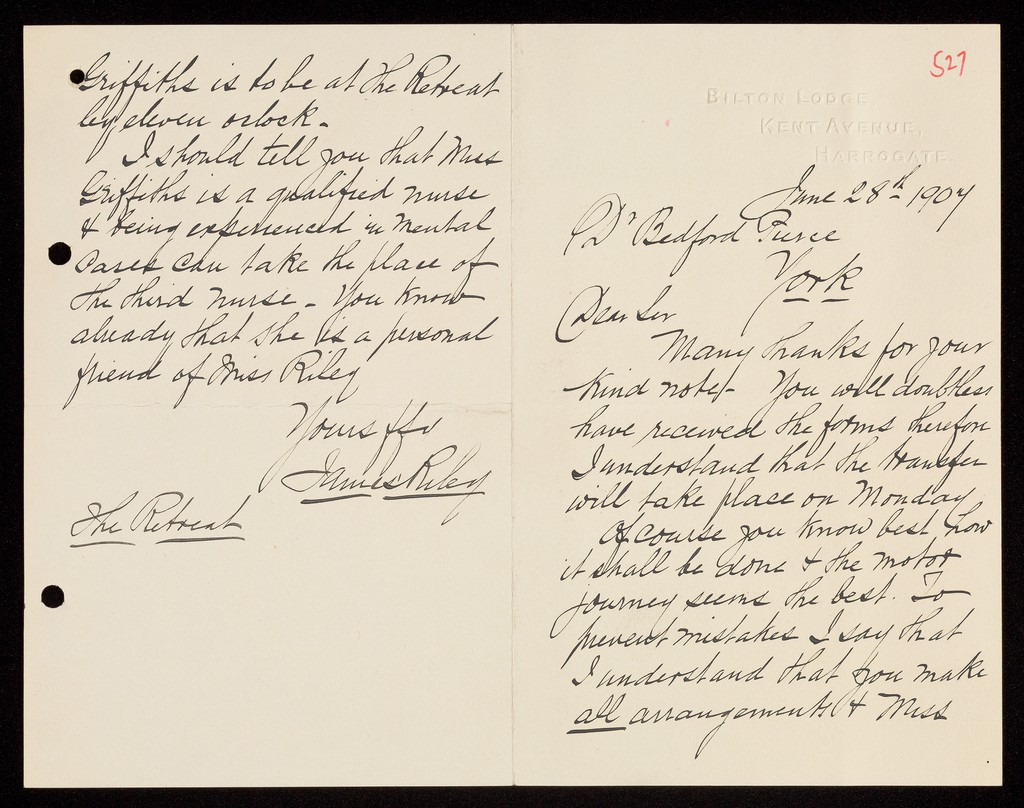 527
BILTON LODGE
KENT AVENUE,
HARROGATE
June 28th 1907
Dr Bedford Pierce
York
Dear Sir
Many thanks for your
kind note - You will doubtless
have received the forms therefore
I understand that the transfer
will take place on Monday
Of course you know best how
it shall be done & the motor
journey seems the best. To
prevent mistakes I say that
I understand that you make
all arrangements & Miss
Griffiths is to be at the Retreat
by eleven oclock -
I should tell you that Miss
Griffiths is a qualified nurse
& being experienced in mental
cases can take the place of
the third nurse - You know
already that she is a personal
friend of Miss Riley
Yours ffy
James Riley
The Retreat